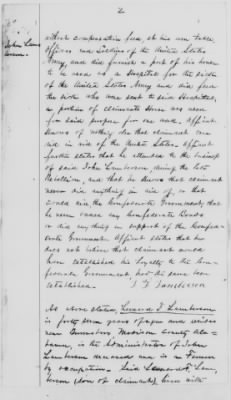 2
John Lamberson.
without compensation feed, at his own table,
officers and Soldiers of the United States
Army, and did furnish a part of his house
to be used as a Hospital for the sick
of the United States Army and did feed
the sick who was sent to said Hospital,
a portion of claimants House was used
for said purpose for one week. Affiant
knows of nothing else that claimant ever
did in aid of the United States. Affiant
further states that he attended to the business
of said John Lamberson, during the late
Rebellion, and that he knows that claimant
never did anything in aid of, or that
would aid the Confederate Government, that
he never owned any Confederate Bonds
or did anything in support of the Confede-
rate Government. Affiant states that he
does not believe that claimant could
have established his Loyalty to the Con-
federate Government had the same been
established. L. T. Lamberson
As above stated, Leonard T. Lamberson
is forty seven years of age and resides
near Gurleysville Madison County Ala-
bama, is the Administrator of John
Lamberson deceased and is a Farmer
by occupation. Said Leonard T. Lam-
berson (son of claimant) been with